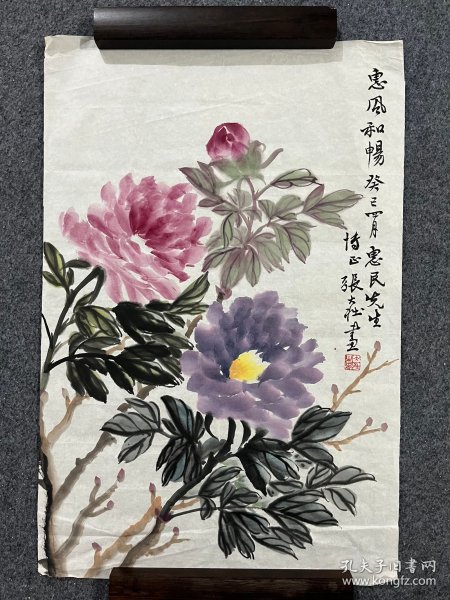 惠風和暢 癸巳四月 惠民先生
博正 張大壯畫
孔夫子旧书网
www.kongfz.com